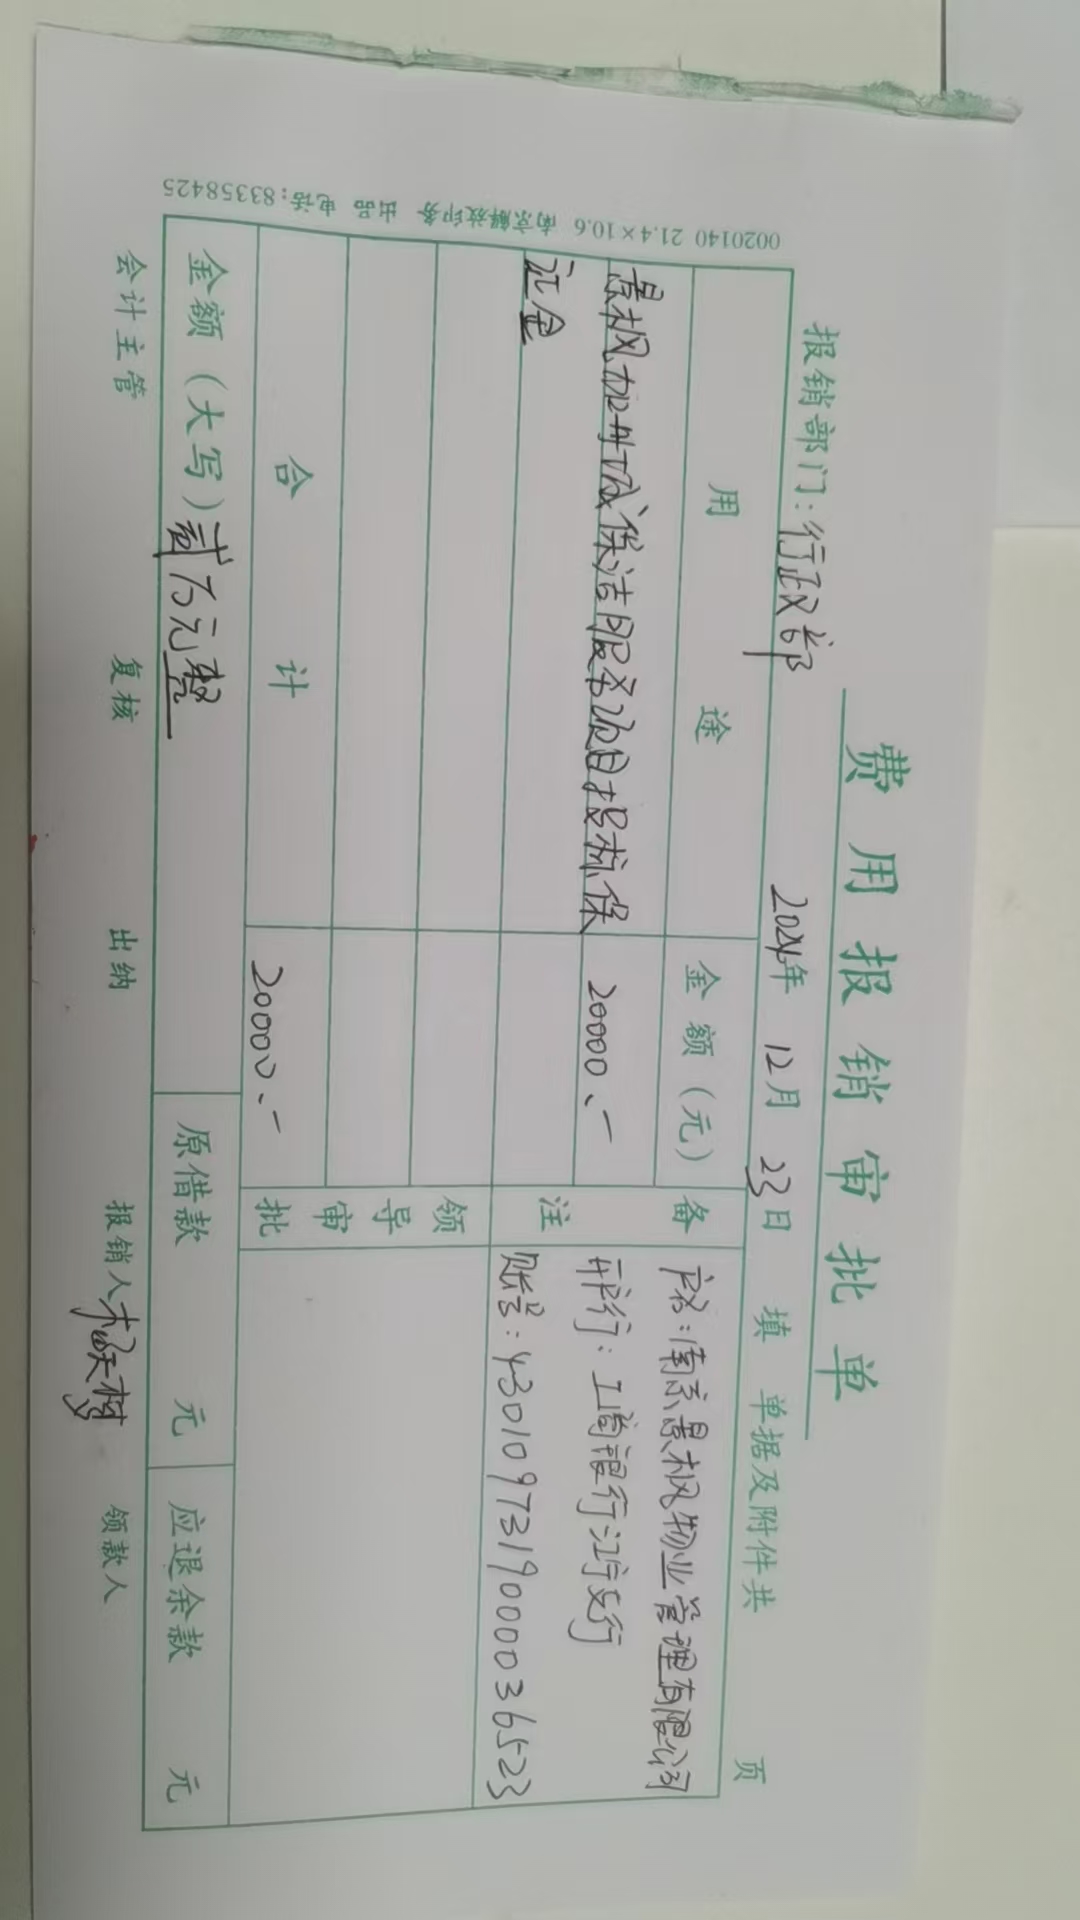 费用报销审批单
报销部门：行政部 2024年 12月 23日 填 单据及附件共 页
用途 金额（元） 备注
景枫加州城保洁服务项目投标保 20000.-
证金
户名：南京景枫物业管理有限公司
开户行：工商银行江宁支行
账号：4301097319000036523
领导审批
合计 20000.-
金额（大写）贰万元整 原借款 元 应退余款 元
会计主管 复核 出纳 报销人 领款人
0020140 21.4×10.6 南京解放印务 出品 电话：83358425